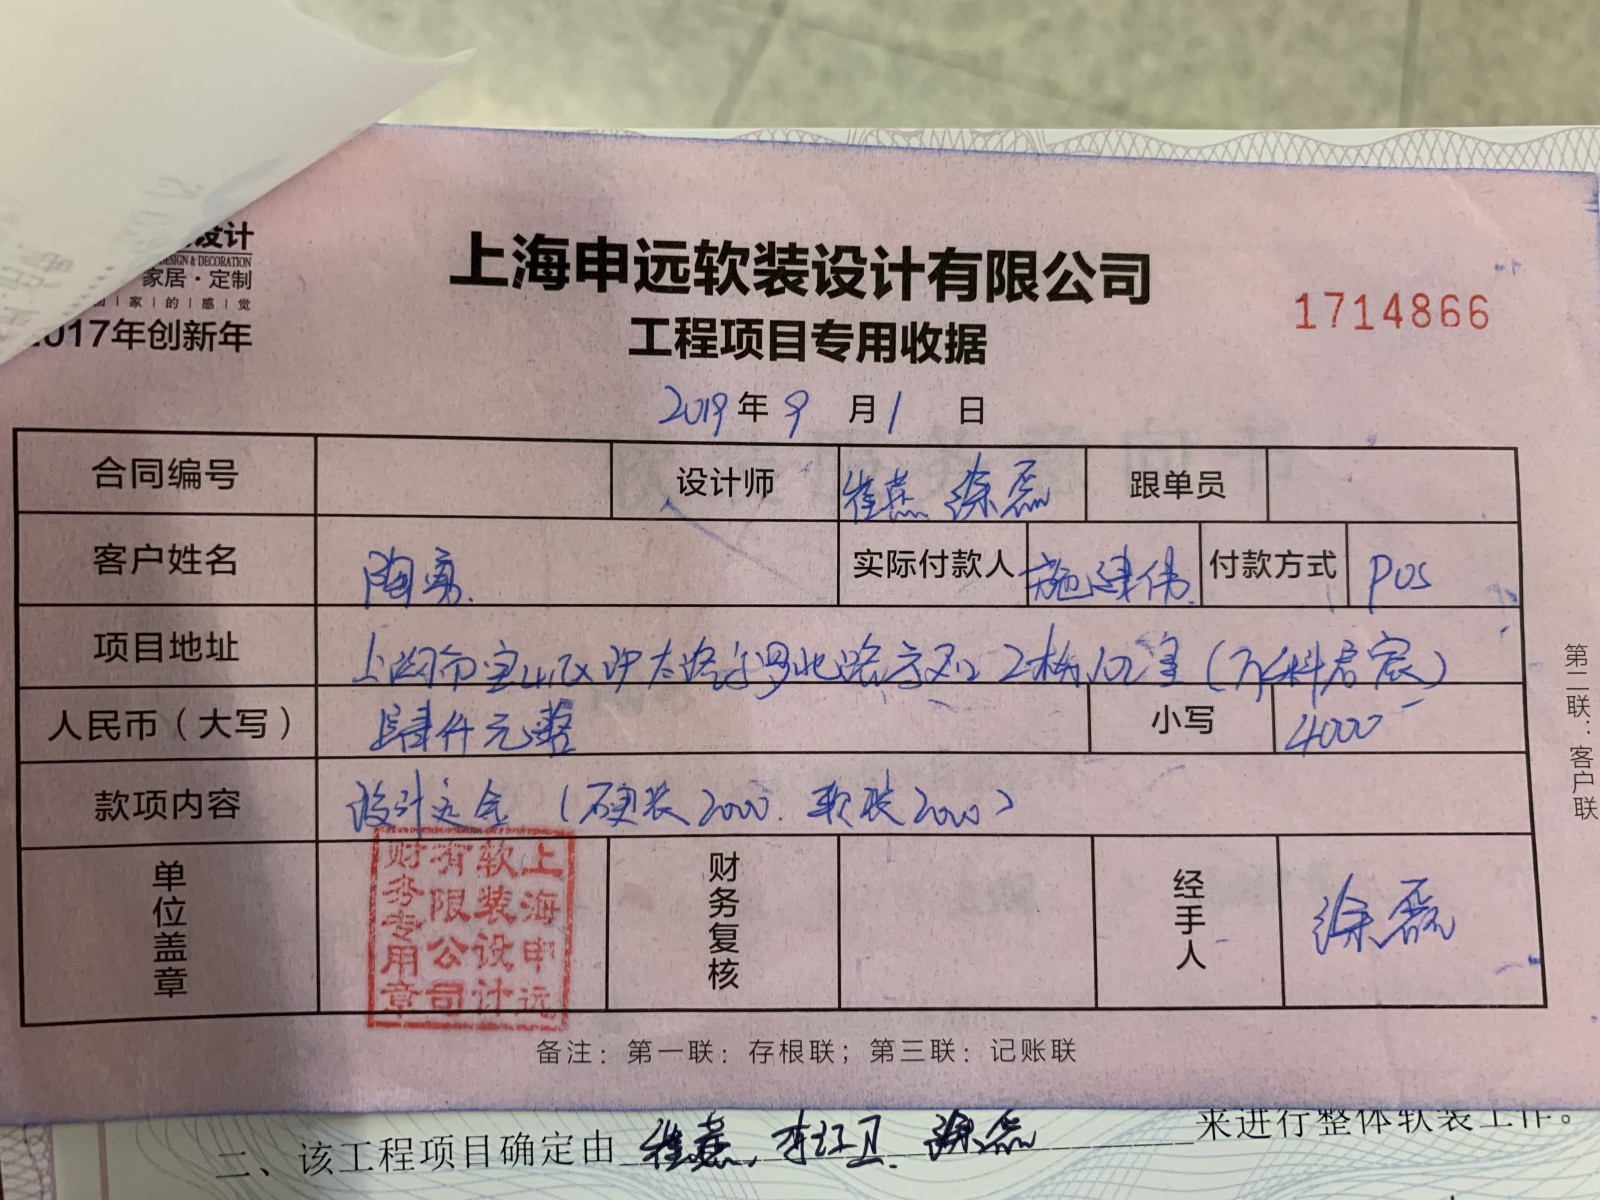 设计
DESIGN & DECORATION
家居·定制
家|的|感|觉
2017年创新年
上海申远软装设计有限公司
工程项目专用收据
1714866
2019年9月1日
合同编号 设计师 崔燕 徐磊 跟单员
客户姓名 陶勇 实际付款人 施建伟 付款方式 POS
项目地址 上海市宝山区沪太路 罗北路 2栋102室（万科启宸）
人民币（大写） 肆仟元整 小写 4000
款项内容 设计定金（硬装2000. 软装2000）
单位盖章 财务复核 经手人 徐磊
上海申远软装设计有限公司财务专用章
备注：第一联：存根联；第三联：记账联
第二联：客户联
二、该工程项目确定由 崔燕、李红卫、徐磊 来进行整体软装工作。